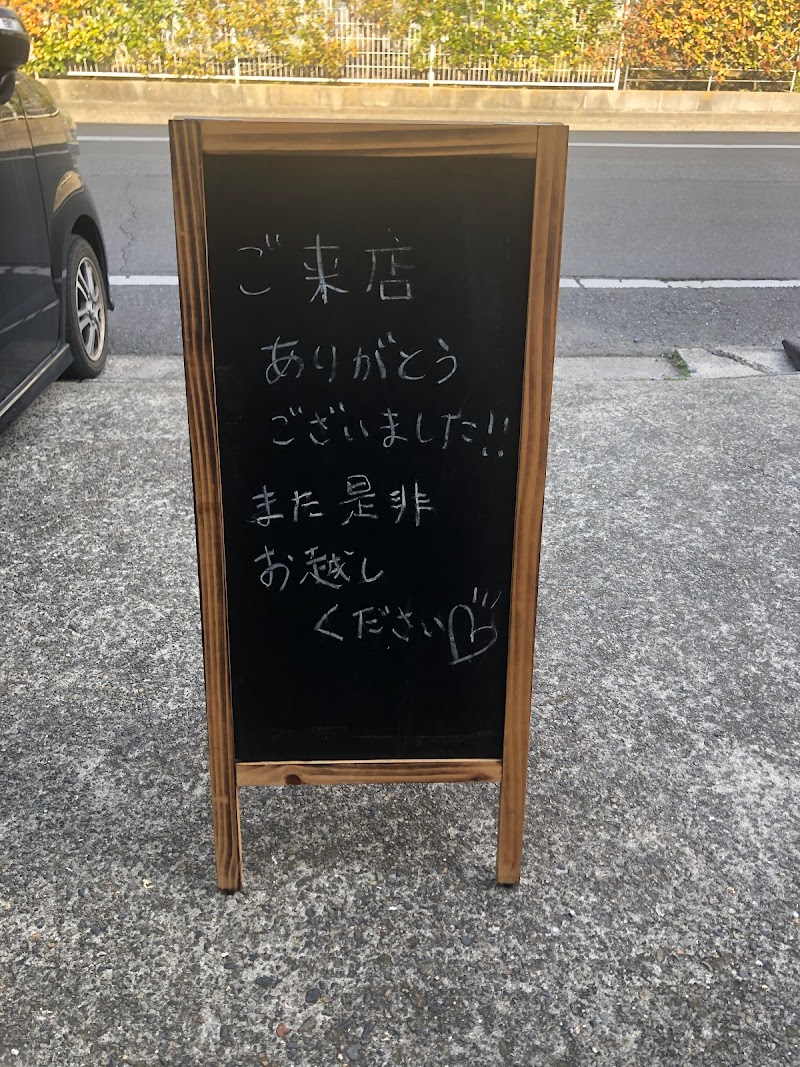 ご来店
ありがとう
ございました!!
また是非
お越し
ください♡